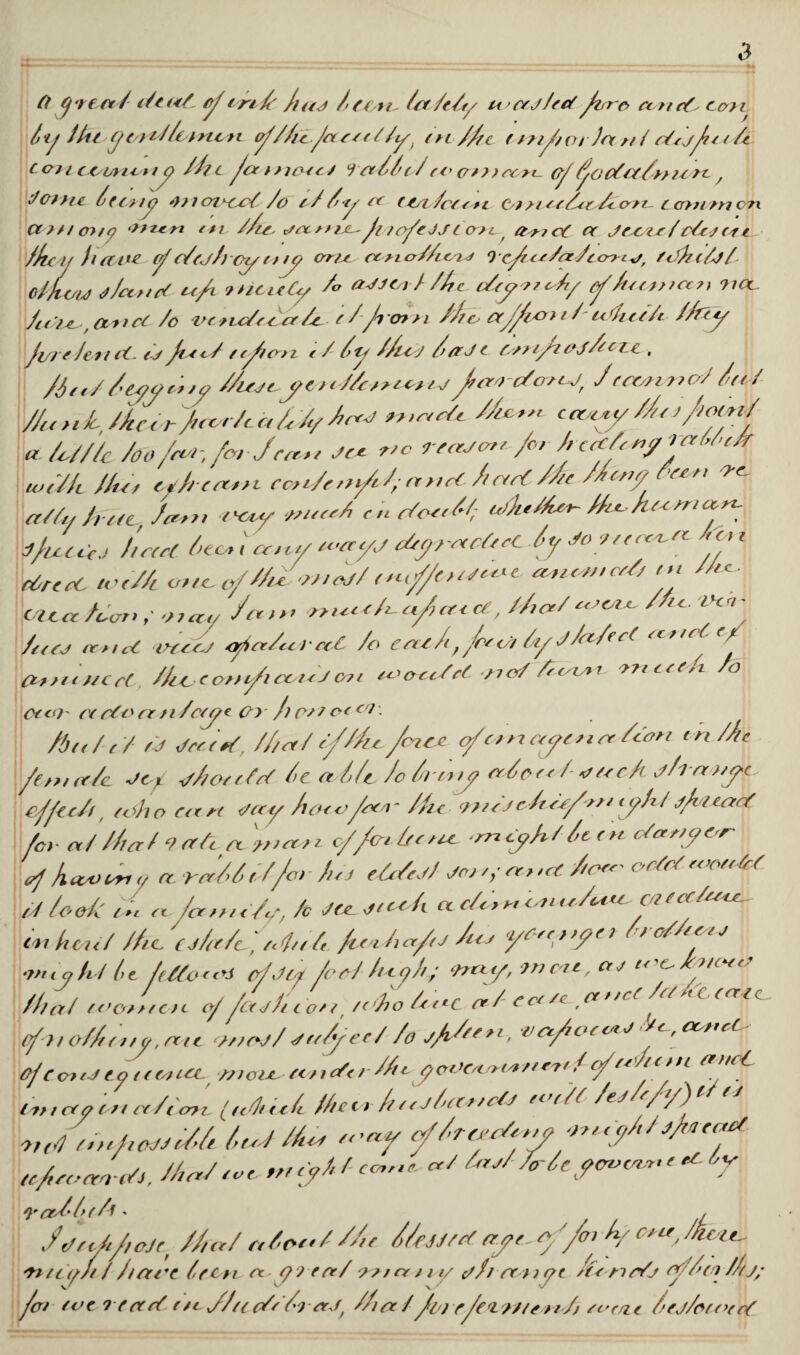 3
A great deal of ink has been lately wasted pro and con
by the gentlemen of the faculty, in the important dispute
concerning the famous rabbit woman of Godalmin,
some being moved to it by a certain emulation common
among men in the same profession, and a secret desire
they have of destroying one anothers reputations, whilst
others stand up nicely to assert the dignity of human na-
ture, and to vindicate it from the affront which they
pretend is put upon it by this base imposture.
But begging these gentlemens pardons, I cannot but
think, their partiality has made them carry this point
a little too far, for I can see no reason for treating rabbits
with this upstream contempt, and had the thing been re-
ally true, I am very much in doubt, whether the human
species had been any ways degraded by so near a kin-
dred with one of the most inoffensive animals in the
creation; nay I am much afraid, that were the vir-
tues and vices natural to each, fairly stated and ex-
amined, the comparison would not turn much to
our advantage or honour.
But if is said, that if the force of imagination in the
female sex should be able to bring about such strange
effects, who can say how far the mischief might spread
for at that rate a man of fortune might be in danger
of having a rabbit for his eldest son; and how odd would
it look in a family, to see such a diminutive creature
inherit the estate, while perhaps his younger brothers
might be fellows of six foot high; nay, more, as we know
that women of fashion, who live at ease, and take care
of nothing, are most subject to spleen, vapours &c, and
of consequence more under the government of whim and
imagination (which their husbands will testify) it is
not impossible but this way of breeding might spread
upwards, that we might come at last to be governed by
rabbits.
I suppose, that about the blessed age of forty one, there
might have been a great many strange kinds of births;
for we read in Hudibras, that presentments were bestowed